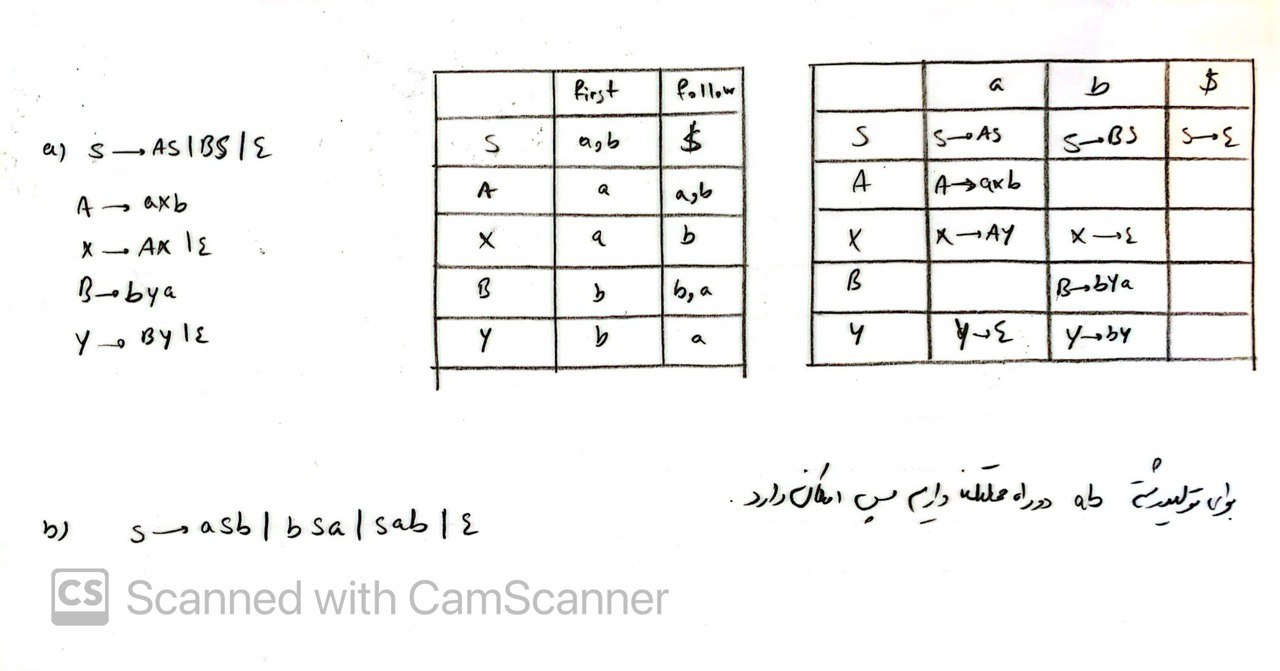 a) S → AS | BS | ε
A → axb
X → AX | ε
B → bya
Y → BY | ε
first follow
S a,b $
A a a,b
X a b
B b b,a
Y b a
a b $
S S→AS S→BS S→ε
A A→axb
X X→AY X→ε
B B→bYa
Y Y→ε Y→bY
برای تولید رشته ab دو راه مختلف داریم پس امکان دارد.
b) S → asb | bsa | sab | ε
CS Scanned with CamScanner